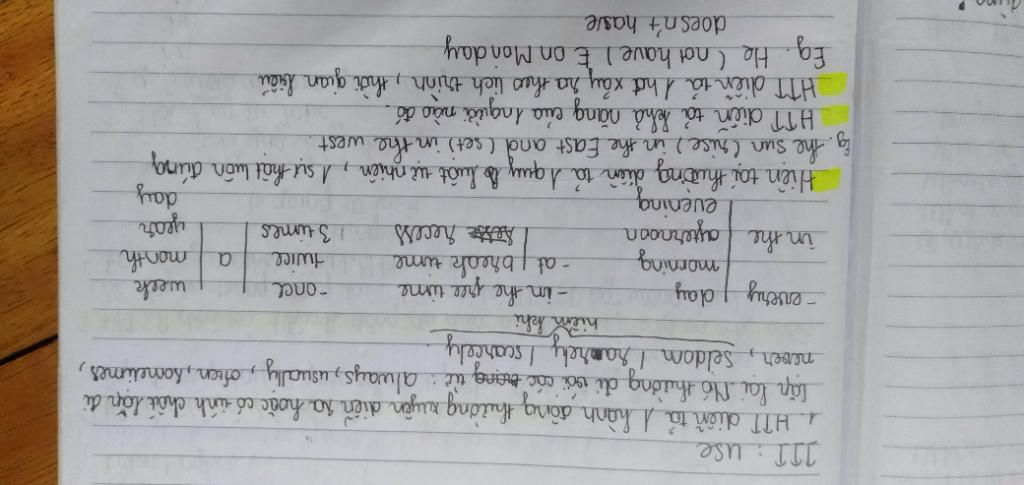 III : use
1. HTT diễn tả 1 hành động thường xuyên diễn ra hoặc có tính chất lặp đi
lặp lại. Nó thường đi với các từ : always, usually, often, sometimes,
never, seldom / rarely / scarcely.
hiếm khi
- every day - in the free time - once week
morning - at break time twice a month
in the afternoon recess 3 times year
evening day
Hiện tại thường diễn tả 1 quy luật tự nhiên, 1 sự thật luôn đúng
Eg. the sun (rise) in the East and (set) in the west.
HTT diễn tả khả năng của 1 người nào đó.
HTT diễn tả 1 hđ xảy ra theo lịch trình, thời gian biểu
Eg. He (not have) E on Monday
doesn't have